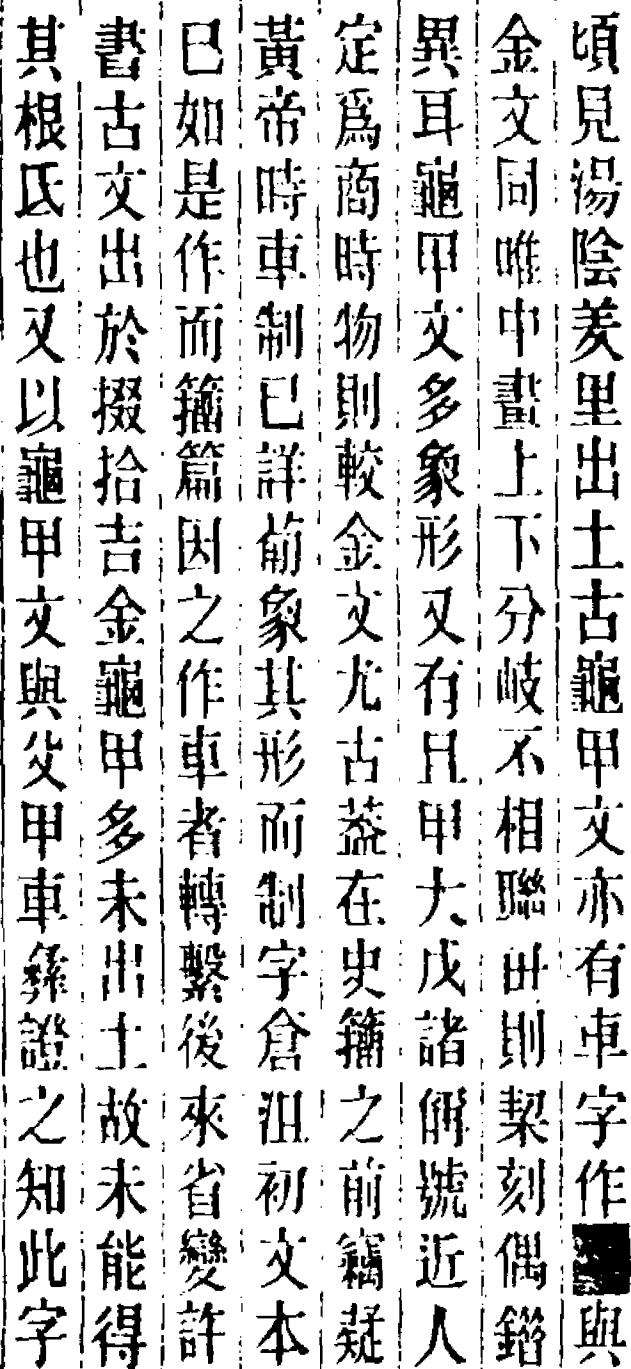 頃見湯陰羑里出土古龜甲文亦有車字作與
金文同唯中畫上下分岐不相聯毌則栔刻偶鍇
異耳龜甲文多象形又有且甲大戊諸偁號近人
定爲商時物則較金文尤古葢在史籒之前竊疑
黃帝時車制已詳葡象其形而制字倉沮初文本
已如是作而籒篇因之作車者轉繫後來省變許
書古文出於掇拾吉金龜甲多未出土故未能得
其根氐也又以龜甲文與父甲車彝證之知此字